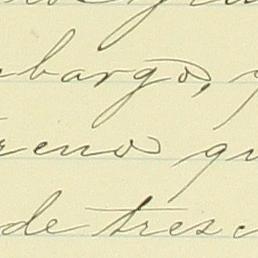 mbargo, y
reno qu
de tres c